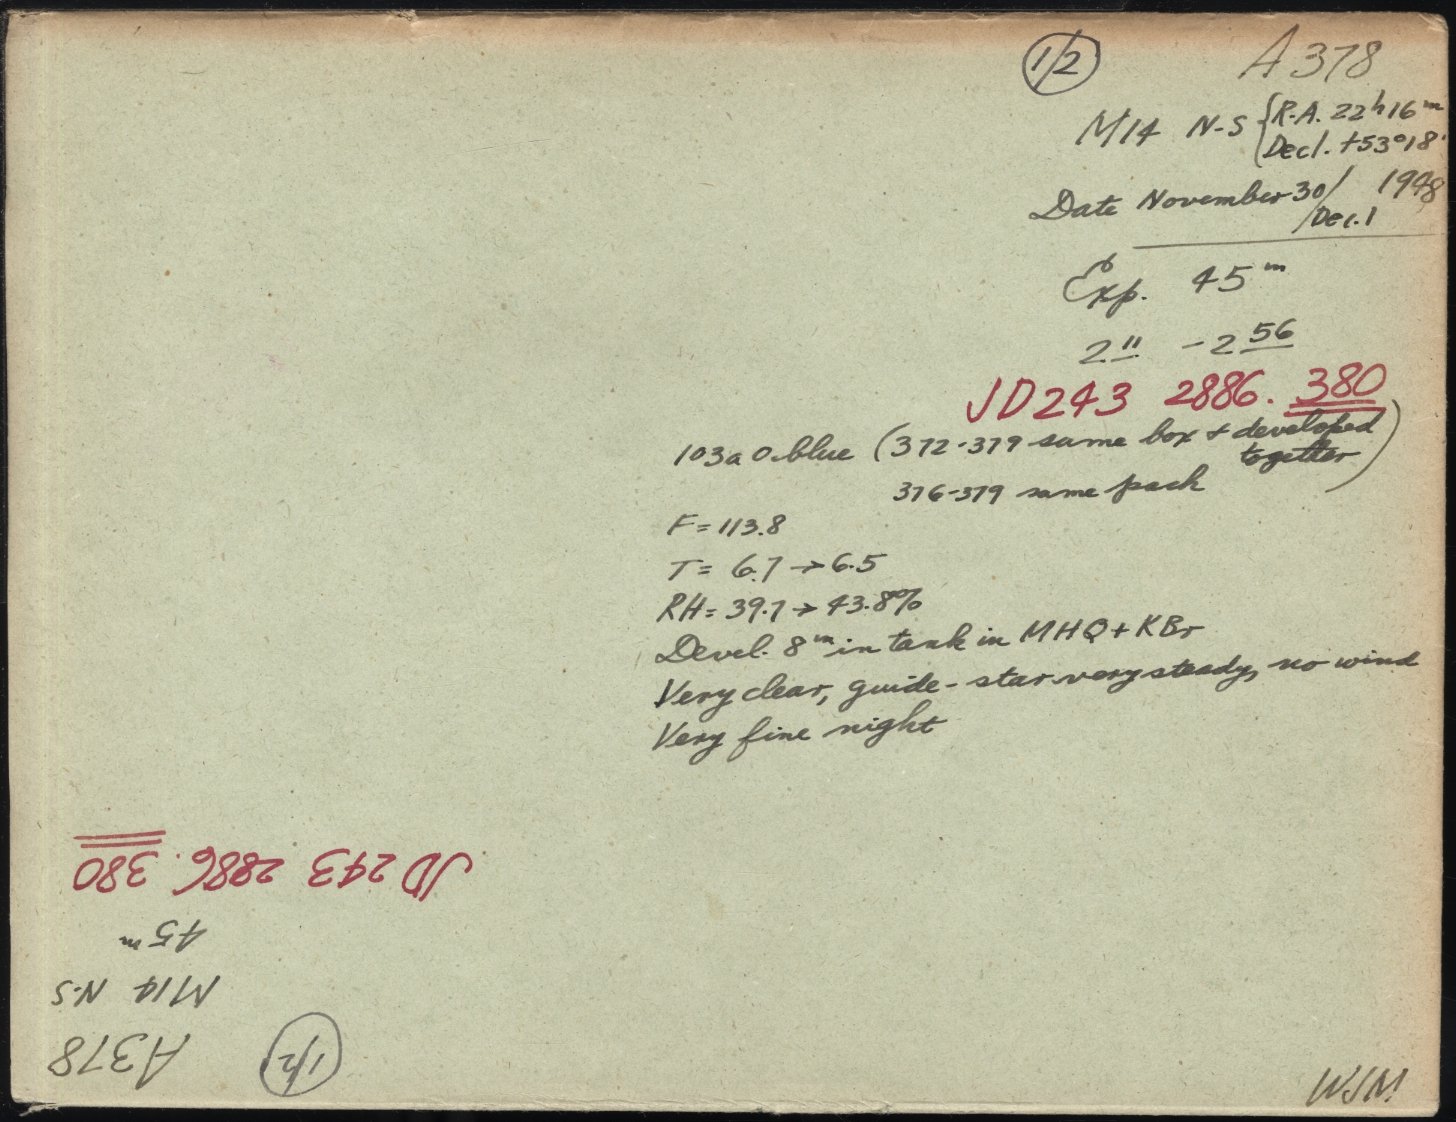 1/2 A378
M14 N-S {R.A. 22h16m
Decl. +53°18'
Date November 30/ 1948
Dec. 1
Exp. 45m
2 11 - 2 56
JD243 2886. 380
103a O blue (372-379 same box + developed
together)
376-379 same pack
F = 113.8
T = 6.7 → 6.5
RH = 39.7 → 43.8%
Devel. 8m in tank in MHQ + KBr
Very clear, guide-star very steady, no wind
Very fine night
JD 243 2886. 380
45m
M14 N-S
A378 1/2